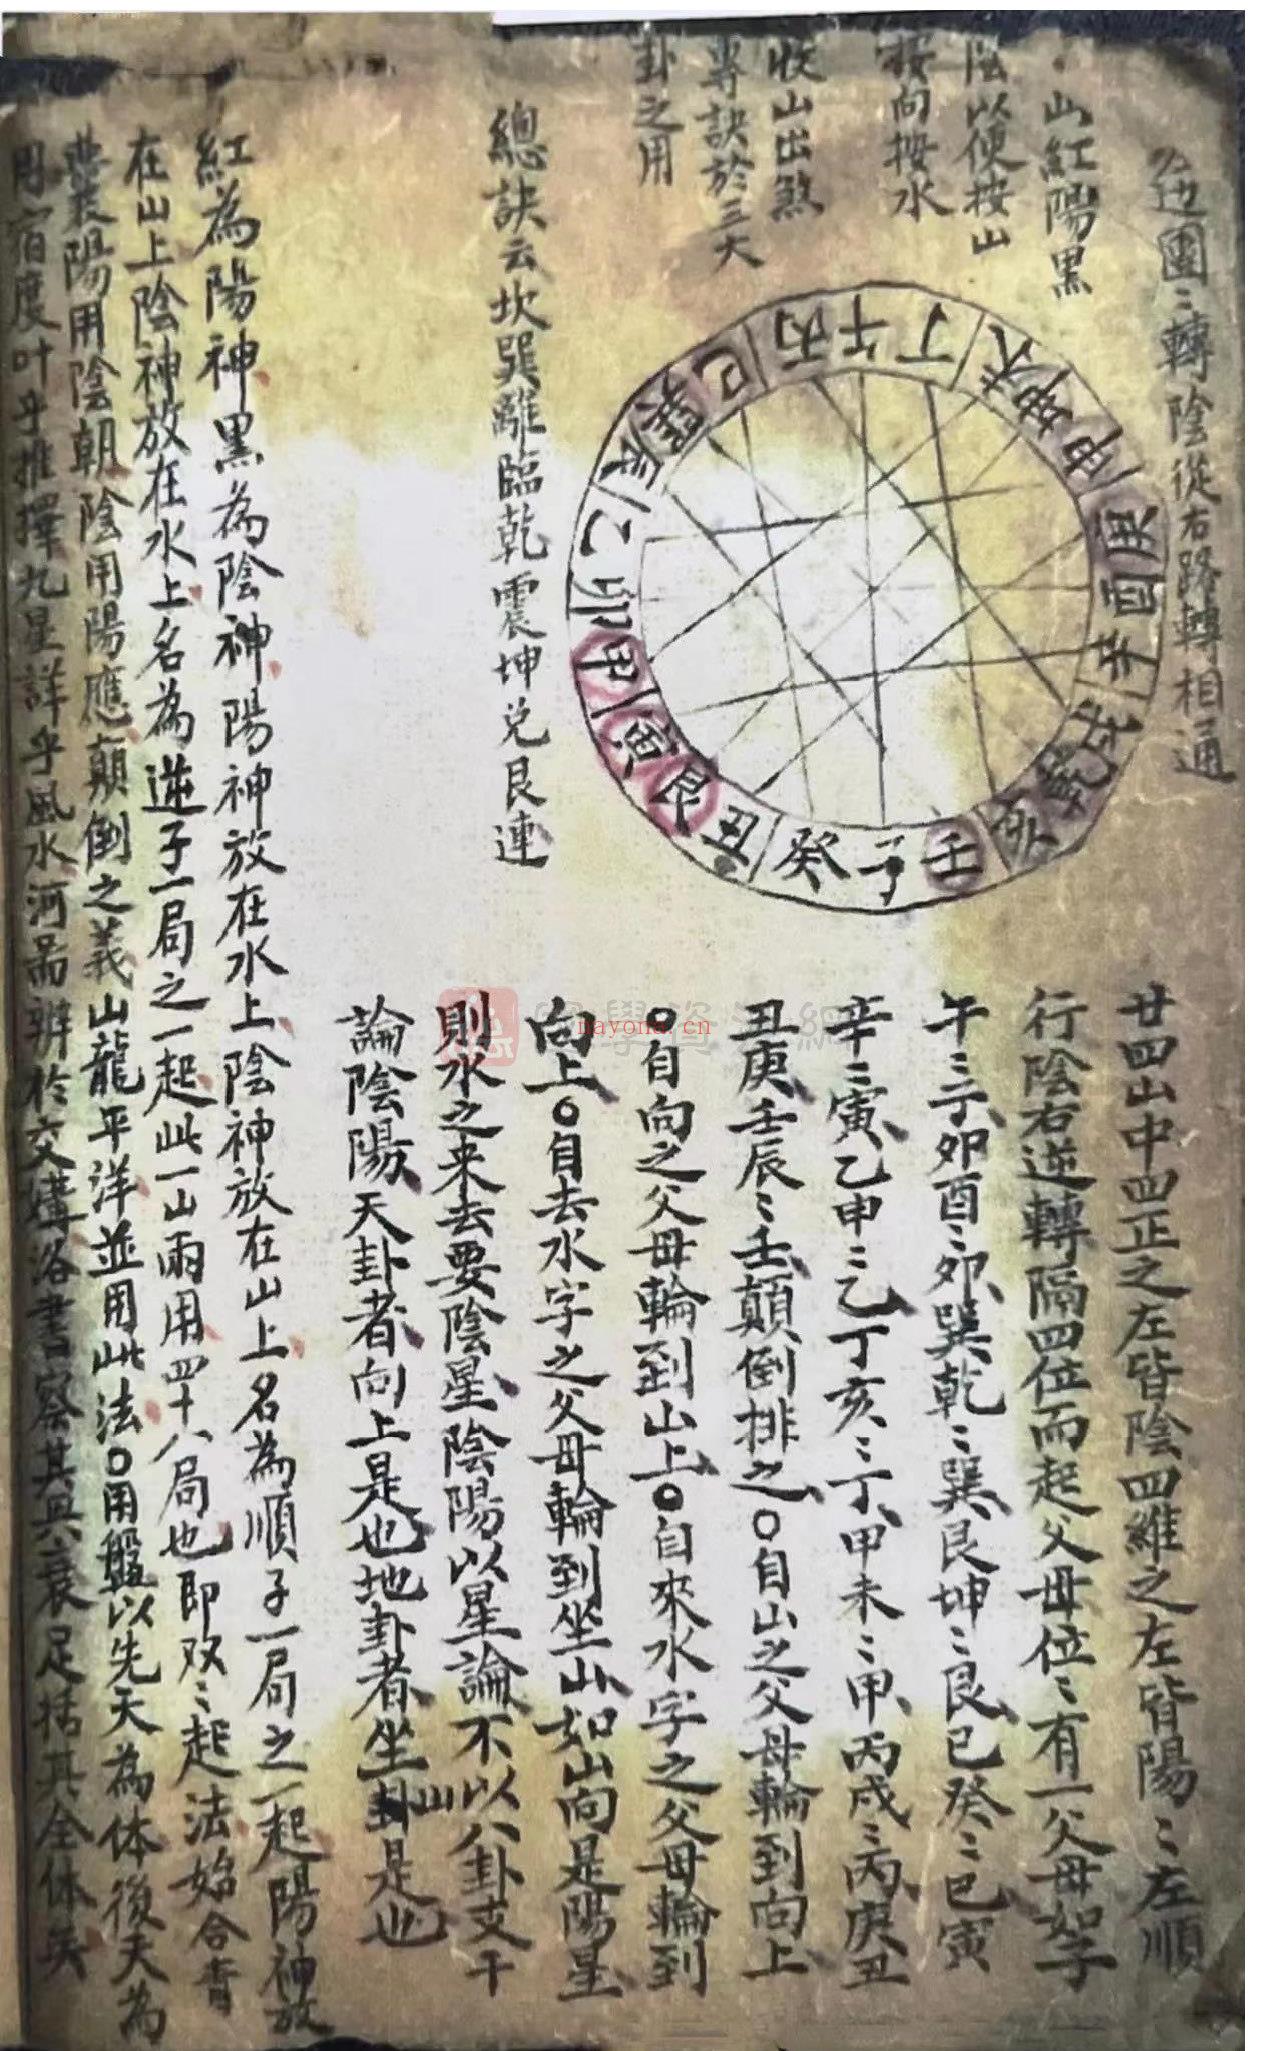 边團〻轉陰從右路轉相通
山紅陽黑
陰以便按山
按向按水
收山出煞
專訣於三大
卦之用
總訣云坎巽離臨乾震坤兌艮連
丙午丁未坤申庚酉辛戌乾亥壬子癸丑艮寅甲卯乙辰巽巳
廿四山中四正之左皆陰四維之左皆陽〻左順
行陰右逆轉隔四位而起父母位〻有一父母如子
午〻子卯酉〻卯巽乾〻巽艮坤〻艮巳癸〻巳寅
辛〻寅乙申〻乙丁亥〻丁甲未〻甲丙戌〻丙庚丑
丑庚壬辰〻壬顛倒排之○自山之父母輪到向上
○自向之父母輪到山上○自來水字之父母輪到
向上○自去水字之父母輪到坐山如山向是陽星
則水之来去要陰星陰陽以星論不以八卦支干
論陰陽天卦者向上是也地卦者坐山卦是也
紅為陽神黑為陰神陽神放在水上陰神放在山上名為順子一局之一起陽神放
在山上陰神放在水上名為逆子一局之一起此一山兩用四十八局也即双〻起法始合青
囊裝陽用陰朝陰用陽應顛倒之義山龍平洋並用此法○用盤以先天為体後天為
用宿度叶乎推擇九星詳乎風水河啚辨於交媾洛書察其興衰足括其全体矣
国學資源網
nayona.cn